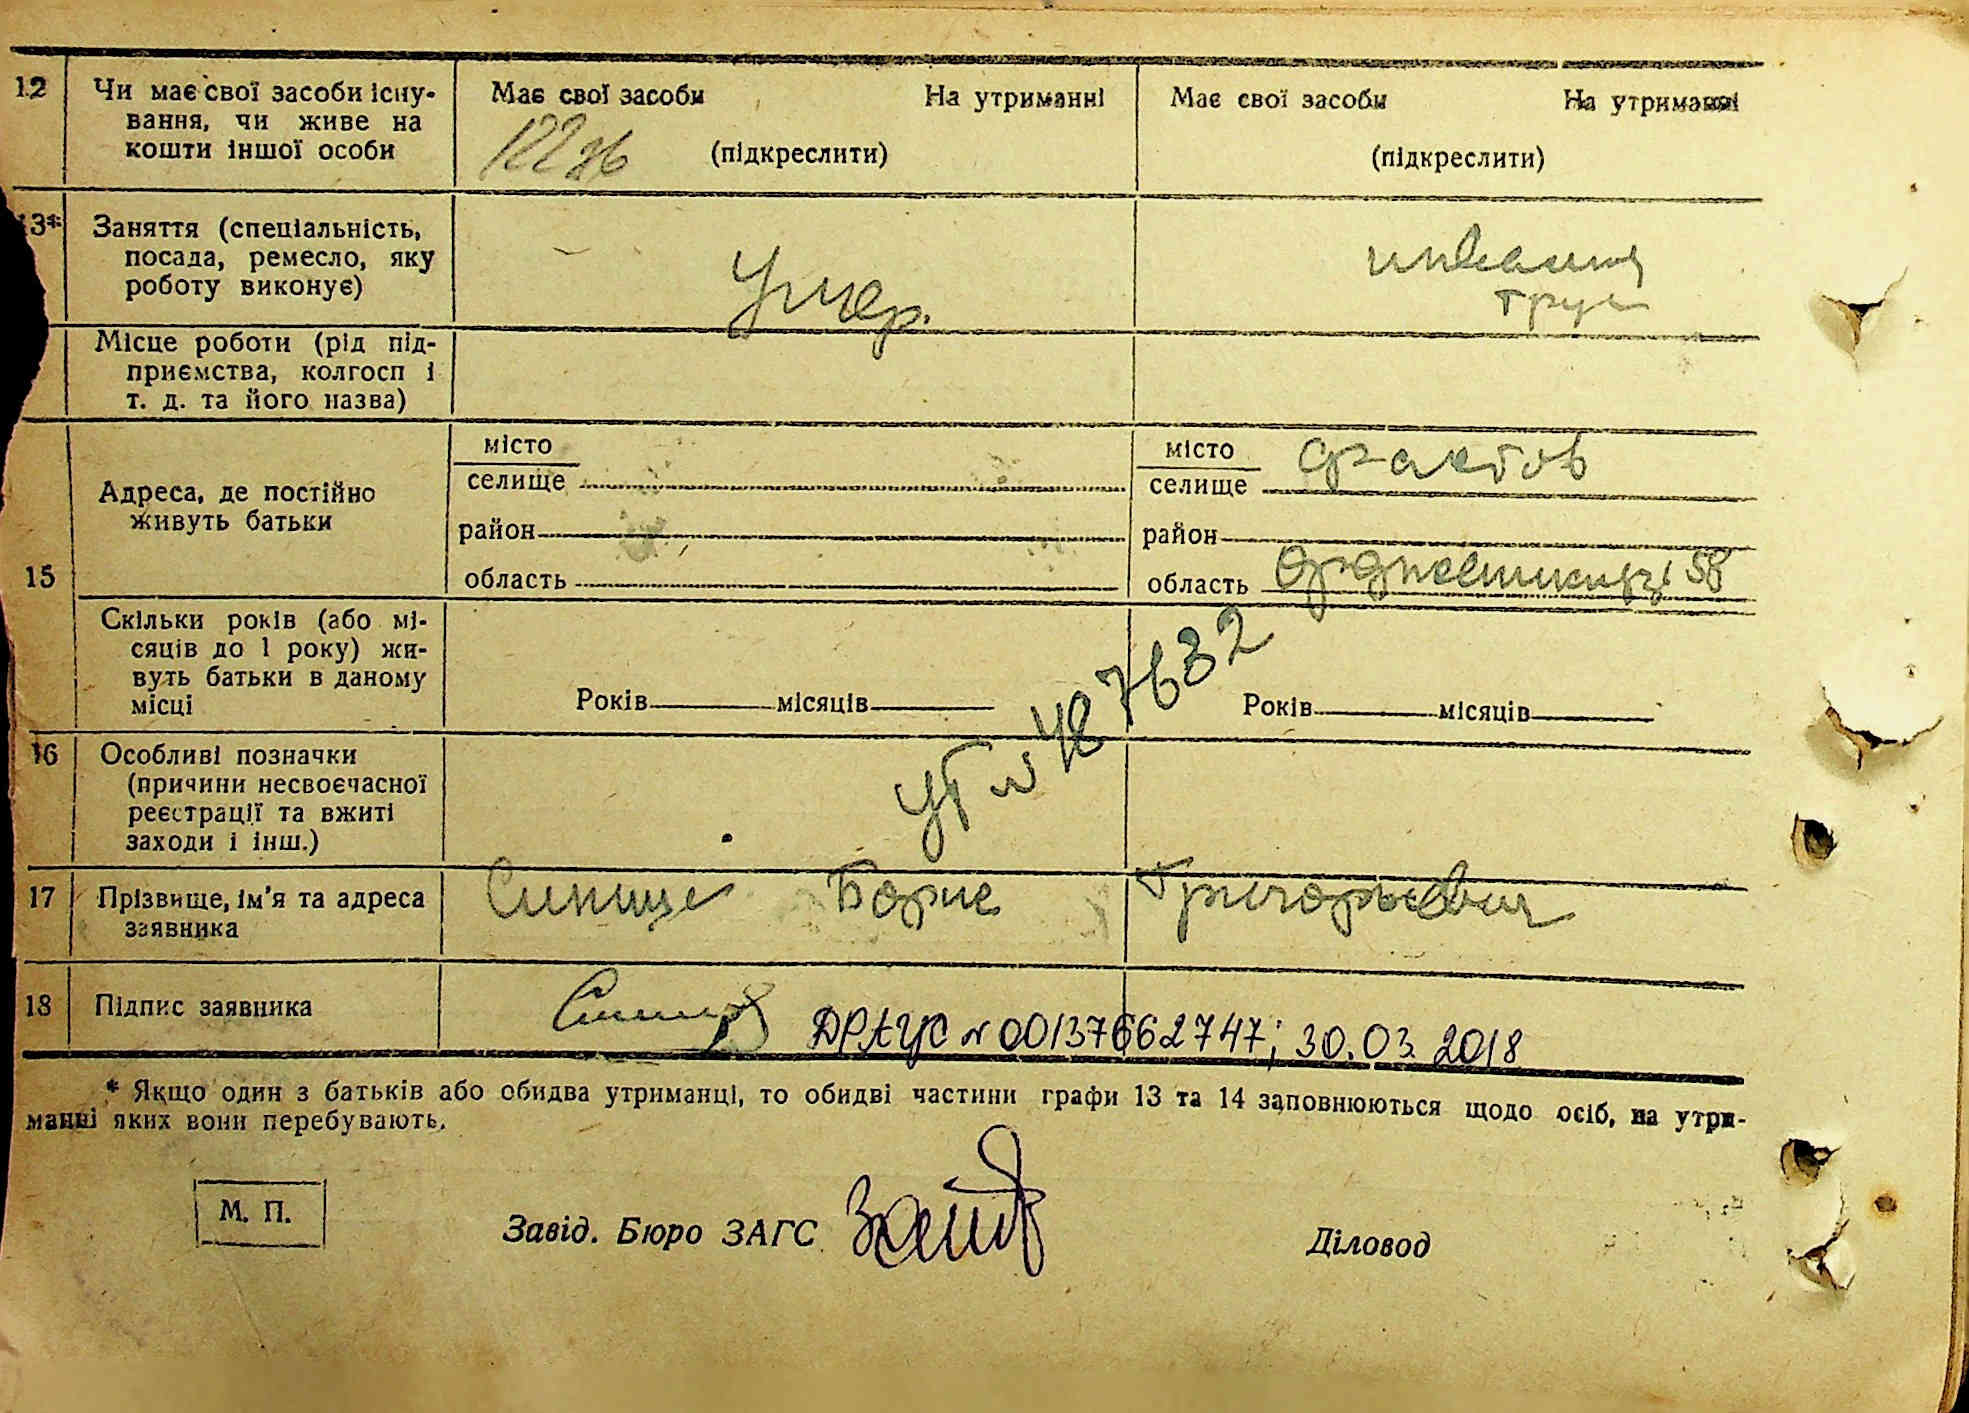 12 Чи має свої засоби існу-
вання, чи живе на
кошти іншої особи
Має свої засоби На утриманні
(підкреслити)
Має свої засоби На утриманні
(підкреслити)
13* Заняття (спеціальність,
посада, ремесло, яку
роботу виконує)
Умер.
Місце роботи (рід під-
приємства, колгосп і
т. д. та його назва)
15
Адреса, де постійно
живуть батьки
місто
селище
район
область
місто
селище
район
область Орджоникидзе 58
Скільки років (або мі-
сяців до 1 року) жи-
вуть батьки в даному
місці
Років місяців
Років місяців
487632
16 Особливі позначки
(причини несвоєчасної
реєстрації та вжиті
заходи і інш.)
17 Прізвище, ім'я та адреса
заявника
Борис Григорьевич
18 Підпис заявника
ДРАЦС № 00137662747; 30.03.2018
* Якщо один з батьків або обидва утриманці, то обидві частини графи 13 та 14 заповнюються щодо осіб, на утри-
манні яких вони перебувають.
М. П.
Завід. Бюро ЗАГС
Діловод